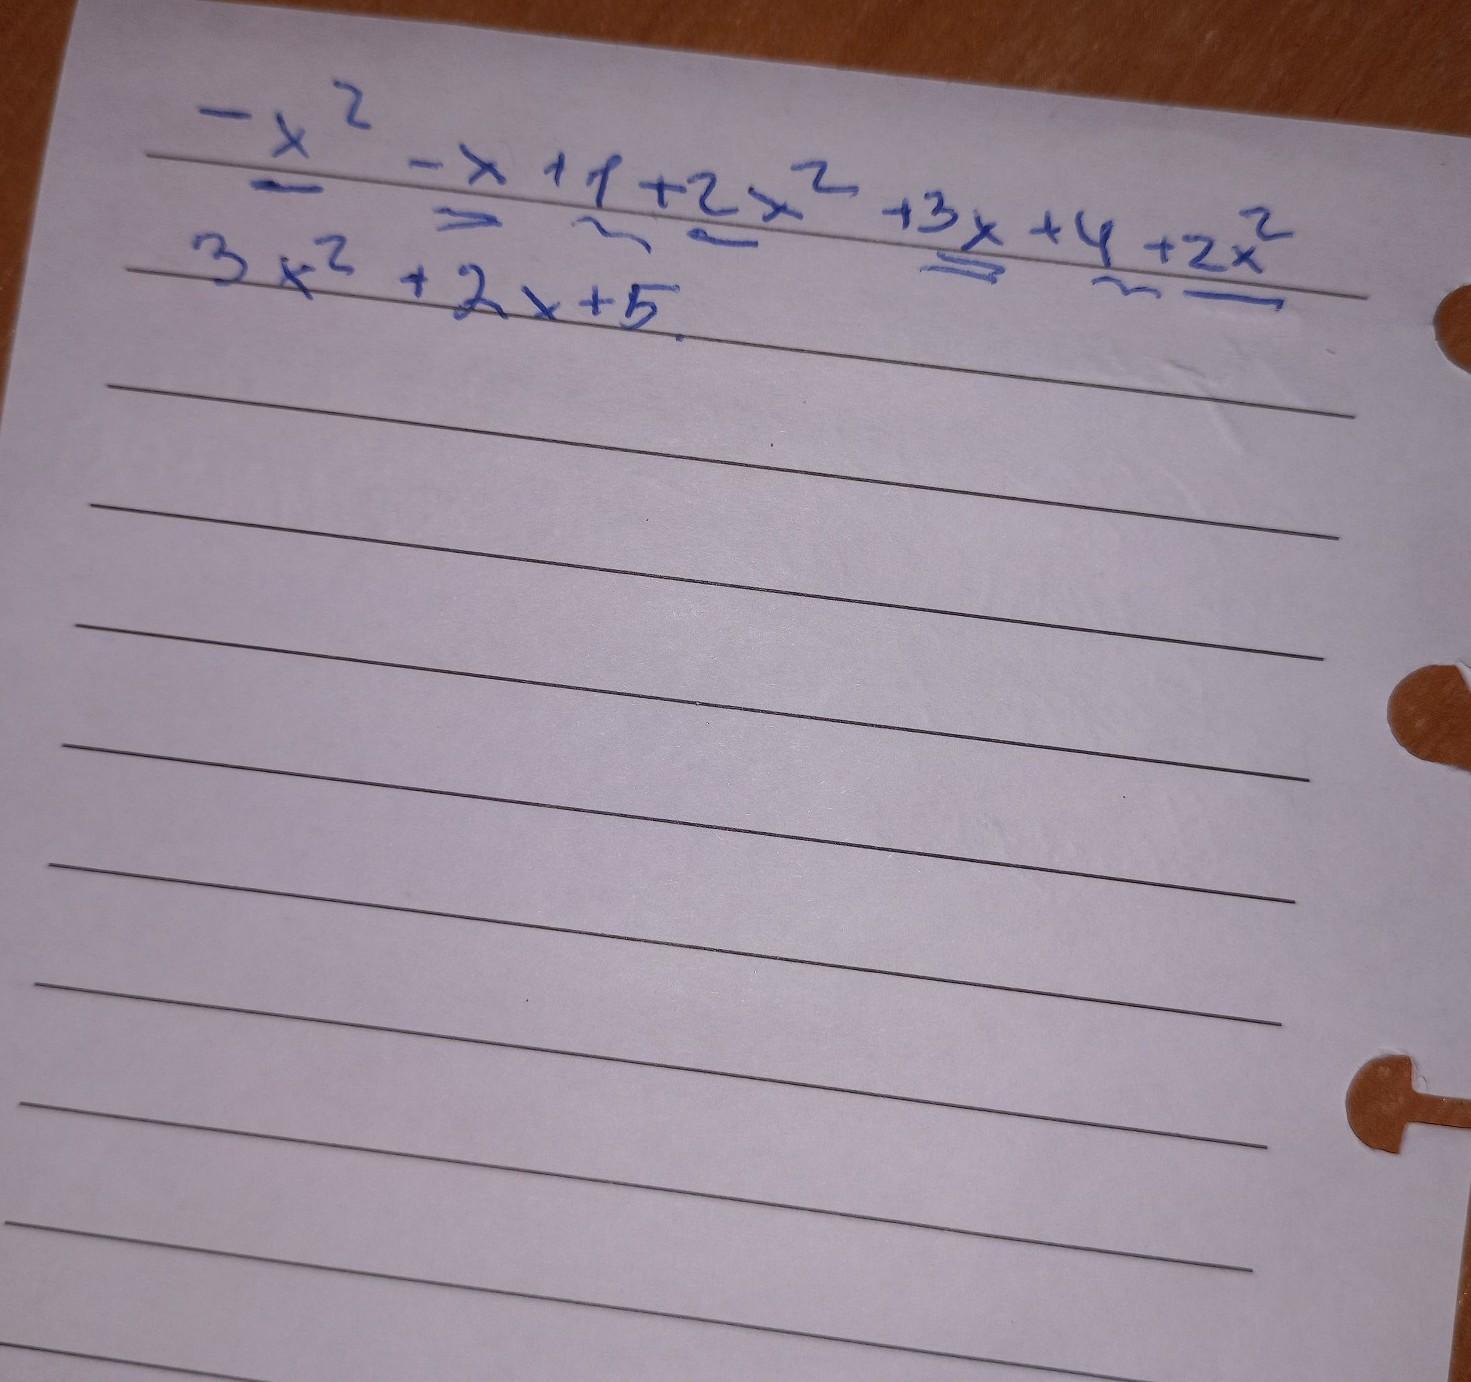 -x² -x +1 +2x² +3x +4 +2x²
3x² +2x+5.